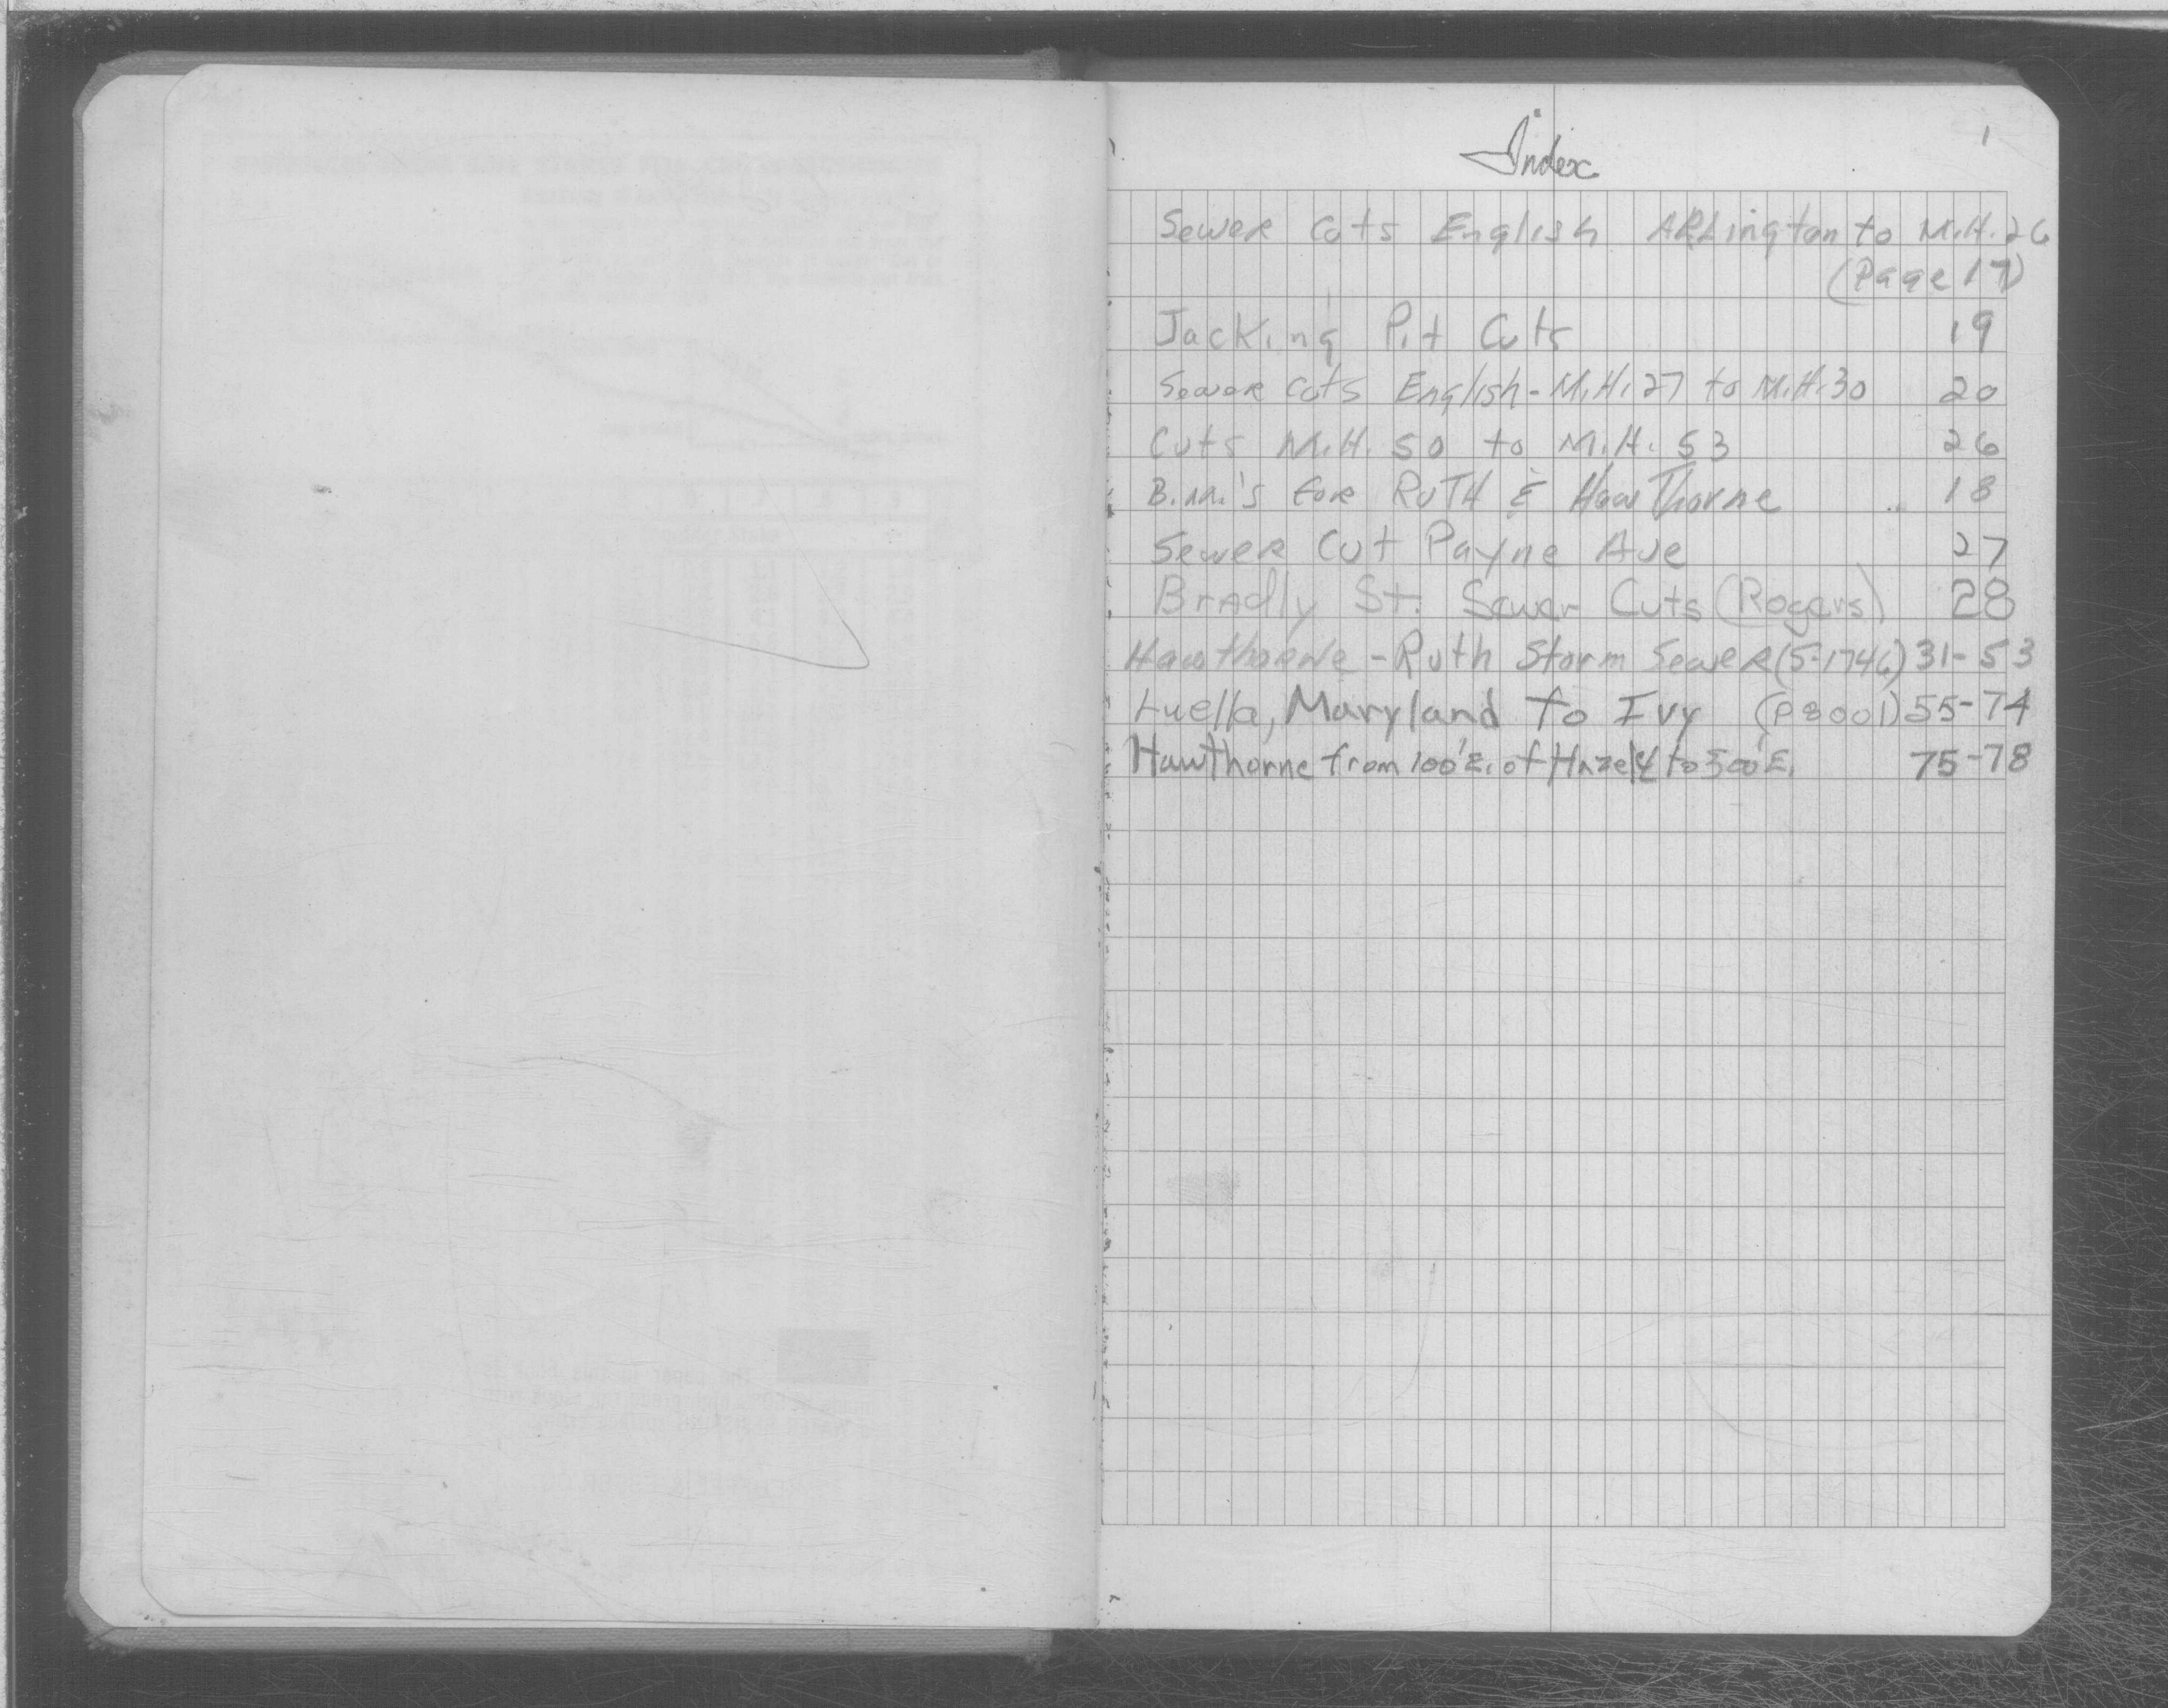 Index
1
Sewer Cuts English Arlington to M.H. 26
(Page 17)
Jacking Pit Cuts 19
Sewer Cuts English - M.H. 27 to M.H. 30 20
Cuts M.H. 50 to M.H. 53 26
B.M.'s for RUTH & HawThorne 18
Sewer Cut Payne Ave 27
Bradly St. Sewer Cuts (Rogers) 28
Hawthorne - Ruth Storm Sewer (S-1746) 31-53
Luella, Maryland to Ivy (P8001) 55-74
Hawthorne from 100' E. of Hazel to 500' E. 75-78